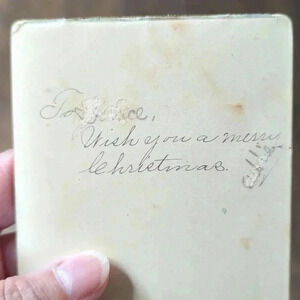 To
Wish you a merry
Christmas.